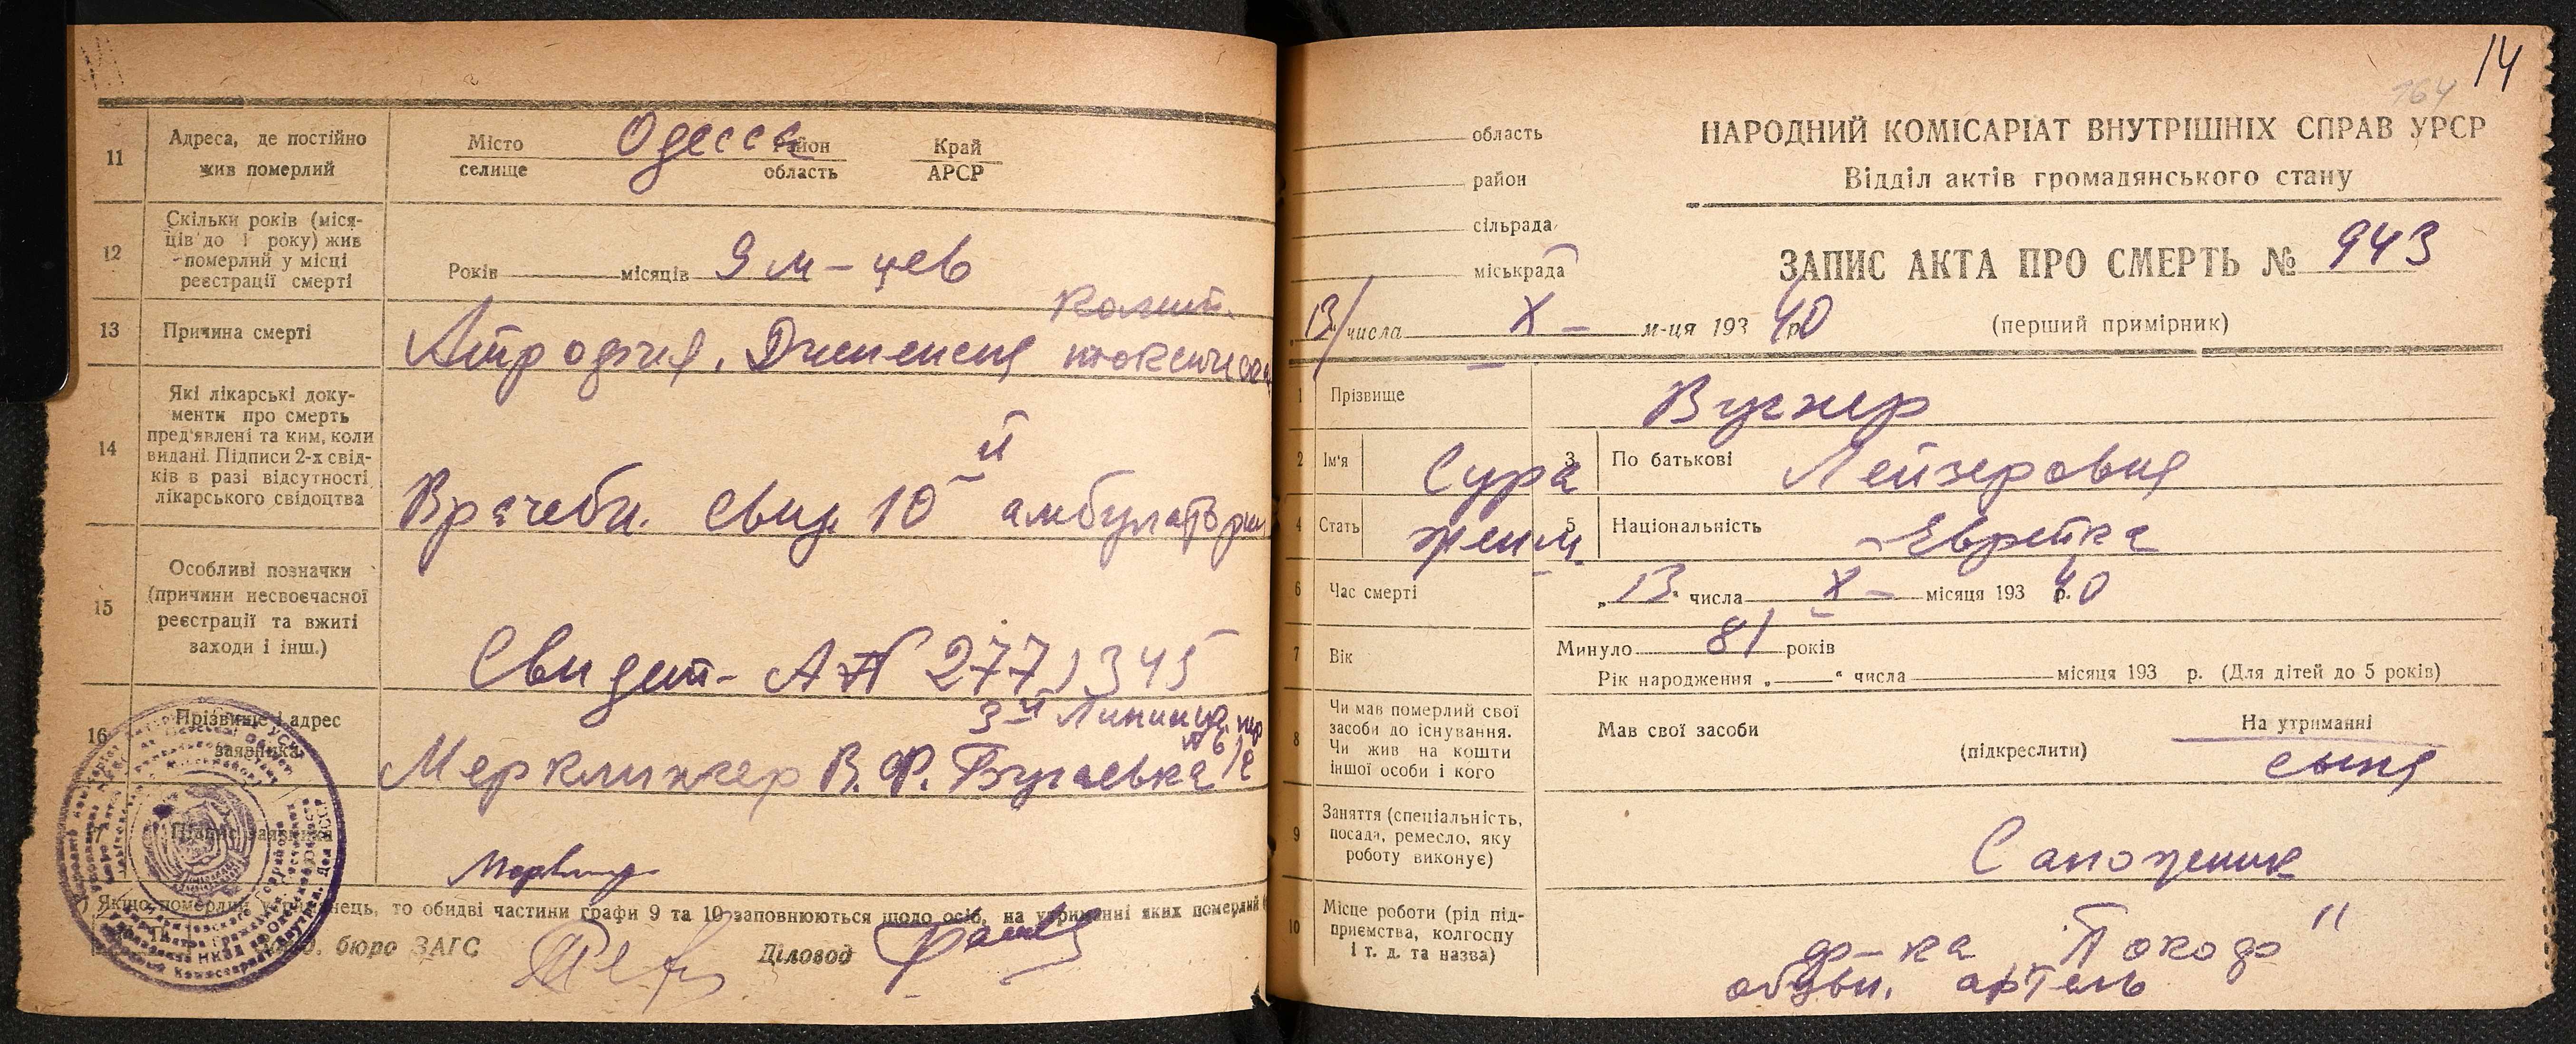 11
Адреса, де постійно
жив померлий
Місто
селище
Одесса
Район
область
Край
АРСР
12
Скільки років (міся-
ців до 1 року) жив
померлий у місці
реєстрації смерті
Років місяців 9 м-цев
13
Причина смерті
Колит.
Атрофия.
14
Які лікарські доку-
менти про смерть
пред'явлені та ким, коли
видані. Підписи 2-х свід-
ків в разі відсутності
лікарського свідоцтва
Врачебн. свид. 10 й амбулатории
15
Особливі позначки
(причини несвоєчасної
реєстрації та вжиті
заходи і інш.)
Свидет-
16
Прізвище і адрес
заявника
3 й
Мерклингер В. Ф. Бугаевка
Підпис заявника
Якщо померлий то обидві частини графи 9 та 10 заповнюються щодо осіб, на утриманні яких померлий
бюро ЗАГС
Діловод
14
164
область
район
сільрада
міськрада
НАРОДНИЙ КОМІСАРІАТ ВНУТРІШНІХ СПРАВ УРСР
Відділ актів громадянського стану
ЗАПИС АКТА ПРО СМЕРТЬ № 943
13/ числа X м-ця 193 40 р.
(перший примірник)
1 Прізвище Вугнер
2 Ім'я Сура
3 По батькові Лейзеровна
4 Стать женск.
5 Національність Еврейка
6 Час смерті „13“ числа X місяця 193 40 р.
7 Вік
Минуло 81 років
Рік народження „ “ числа місяця 193 р. (Для дітей до 5 років)
8
Чи мав померлий свої
засоби до існування.
Чи жив на кошти
іншої особи і кого
Мав свої засоби
(підкреслити)
На утриманні
сына
9
Заняття (спеціальність,
посада, ремесло, яку
роботу виконує)
Сапожник
10
Місце роботи (рід під-
приємства, колгоспу
і т. д. та назва)
ф-ка
обувн. артель